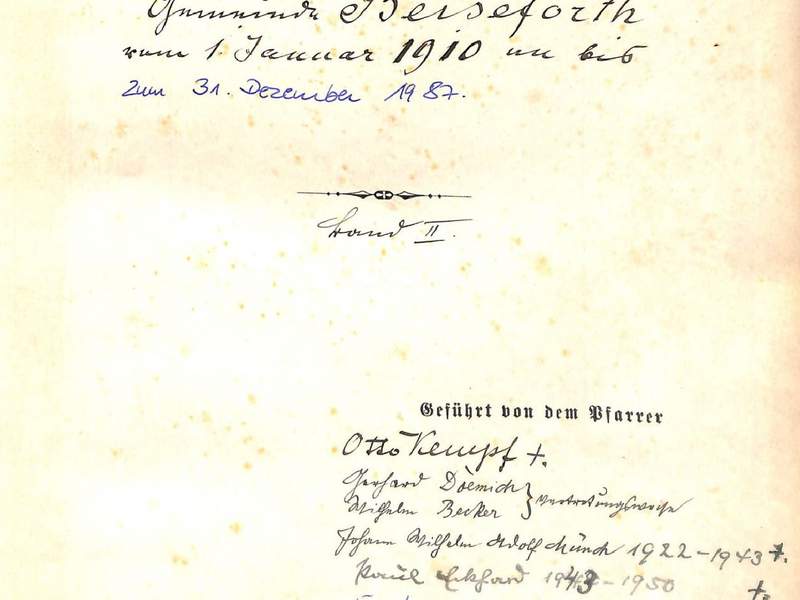 Gemeinde Beiseforth
vom 1. Januar 1910 an bis
zum 31. Dezember 1987.
Band II.
Geführt von dem Pfarrer
Otto Kempf +.
Gerhard Doemich } vertretungsweise
Wilhelm Becker
Johann Wilhelm Adolf Münch 1922-1943 +.
Paul Eckhard 1943-1950 +.